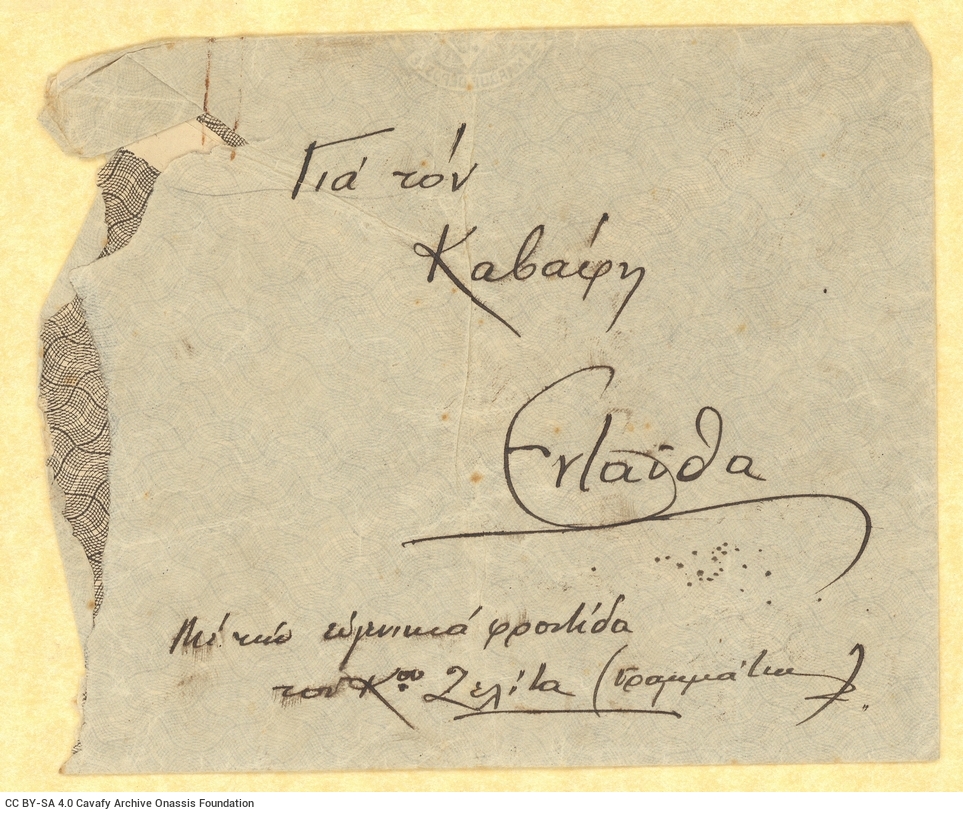 Γιά τόν
Καβάφη
Ενταύθα
Μέ τήν εὐγενικιά φροντίδα
του Κου Ζελίτα (Γραμμάτικα)
CC BY-SA 4.0 Cavafy Archive Onassis Foundation